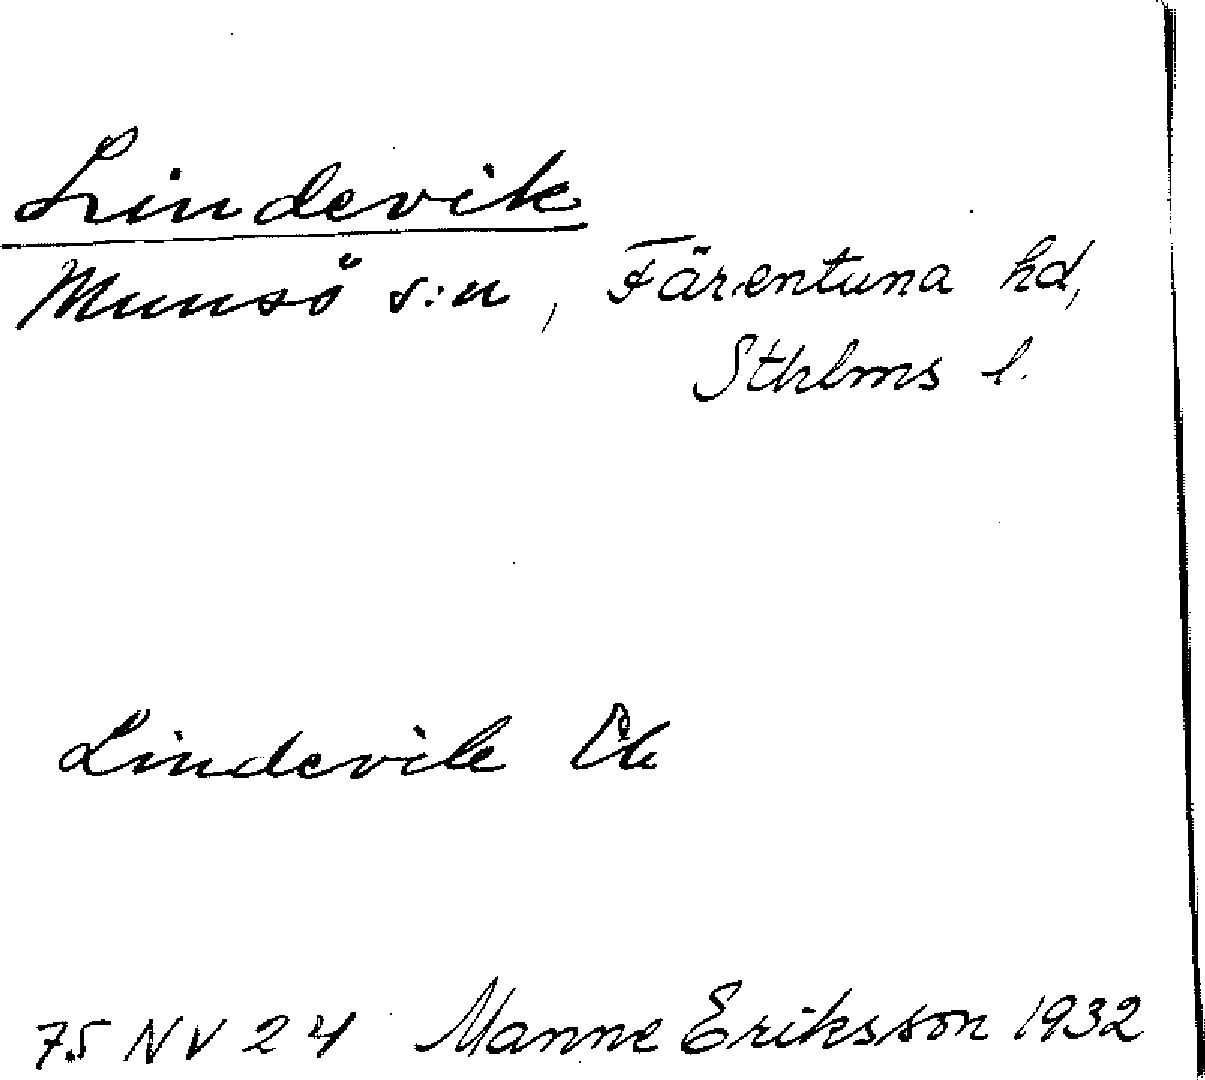 Lindevik
Munsö s:n, Färentuna hd,
Sthlms l.
Lindevik Ek
75 NV 24 Manne Eriksson 1932